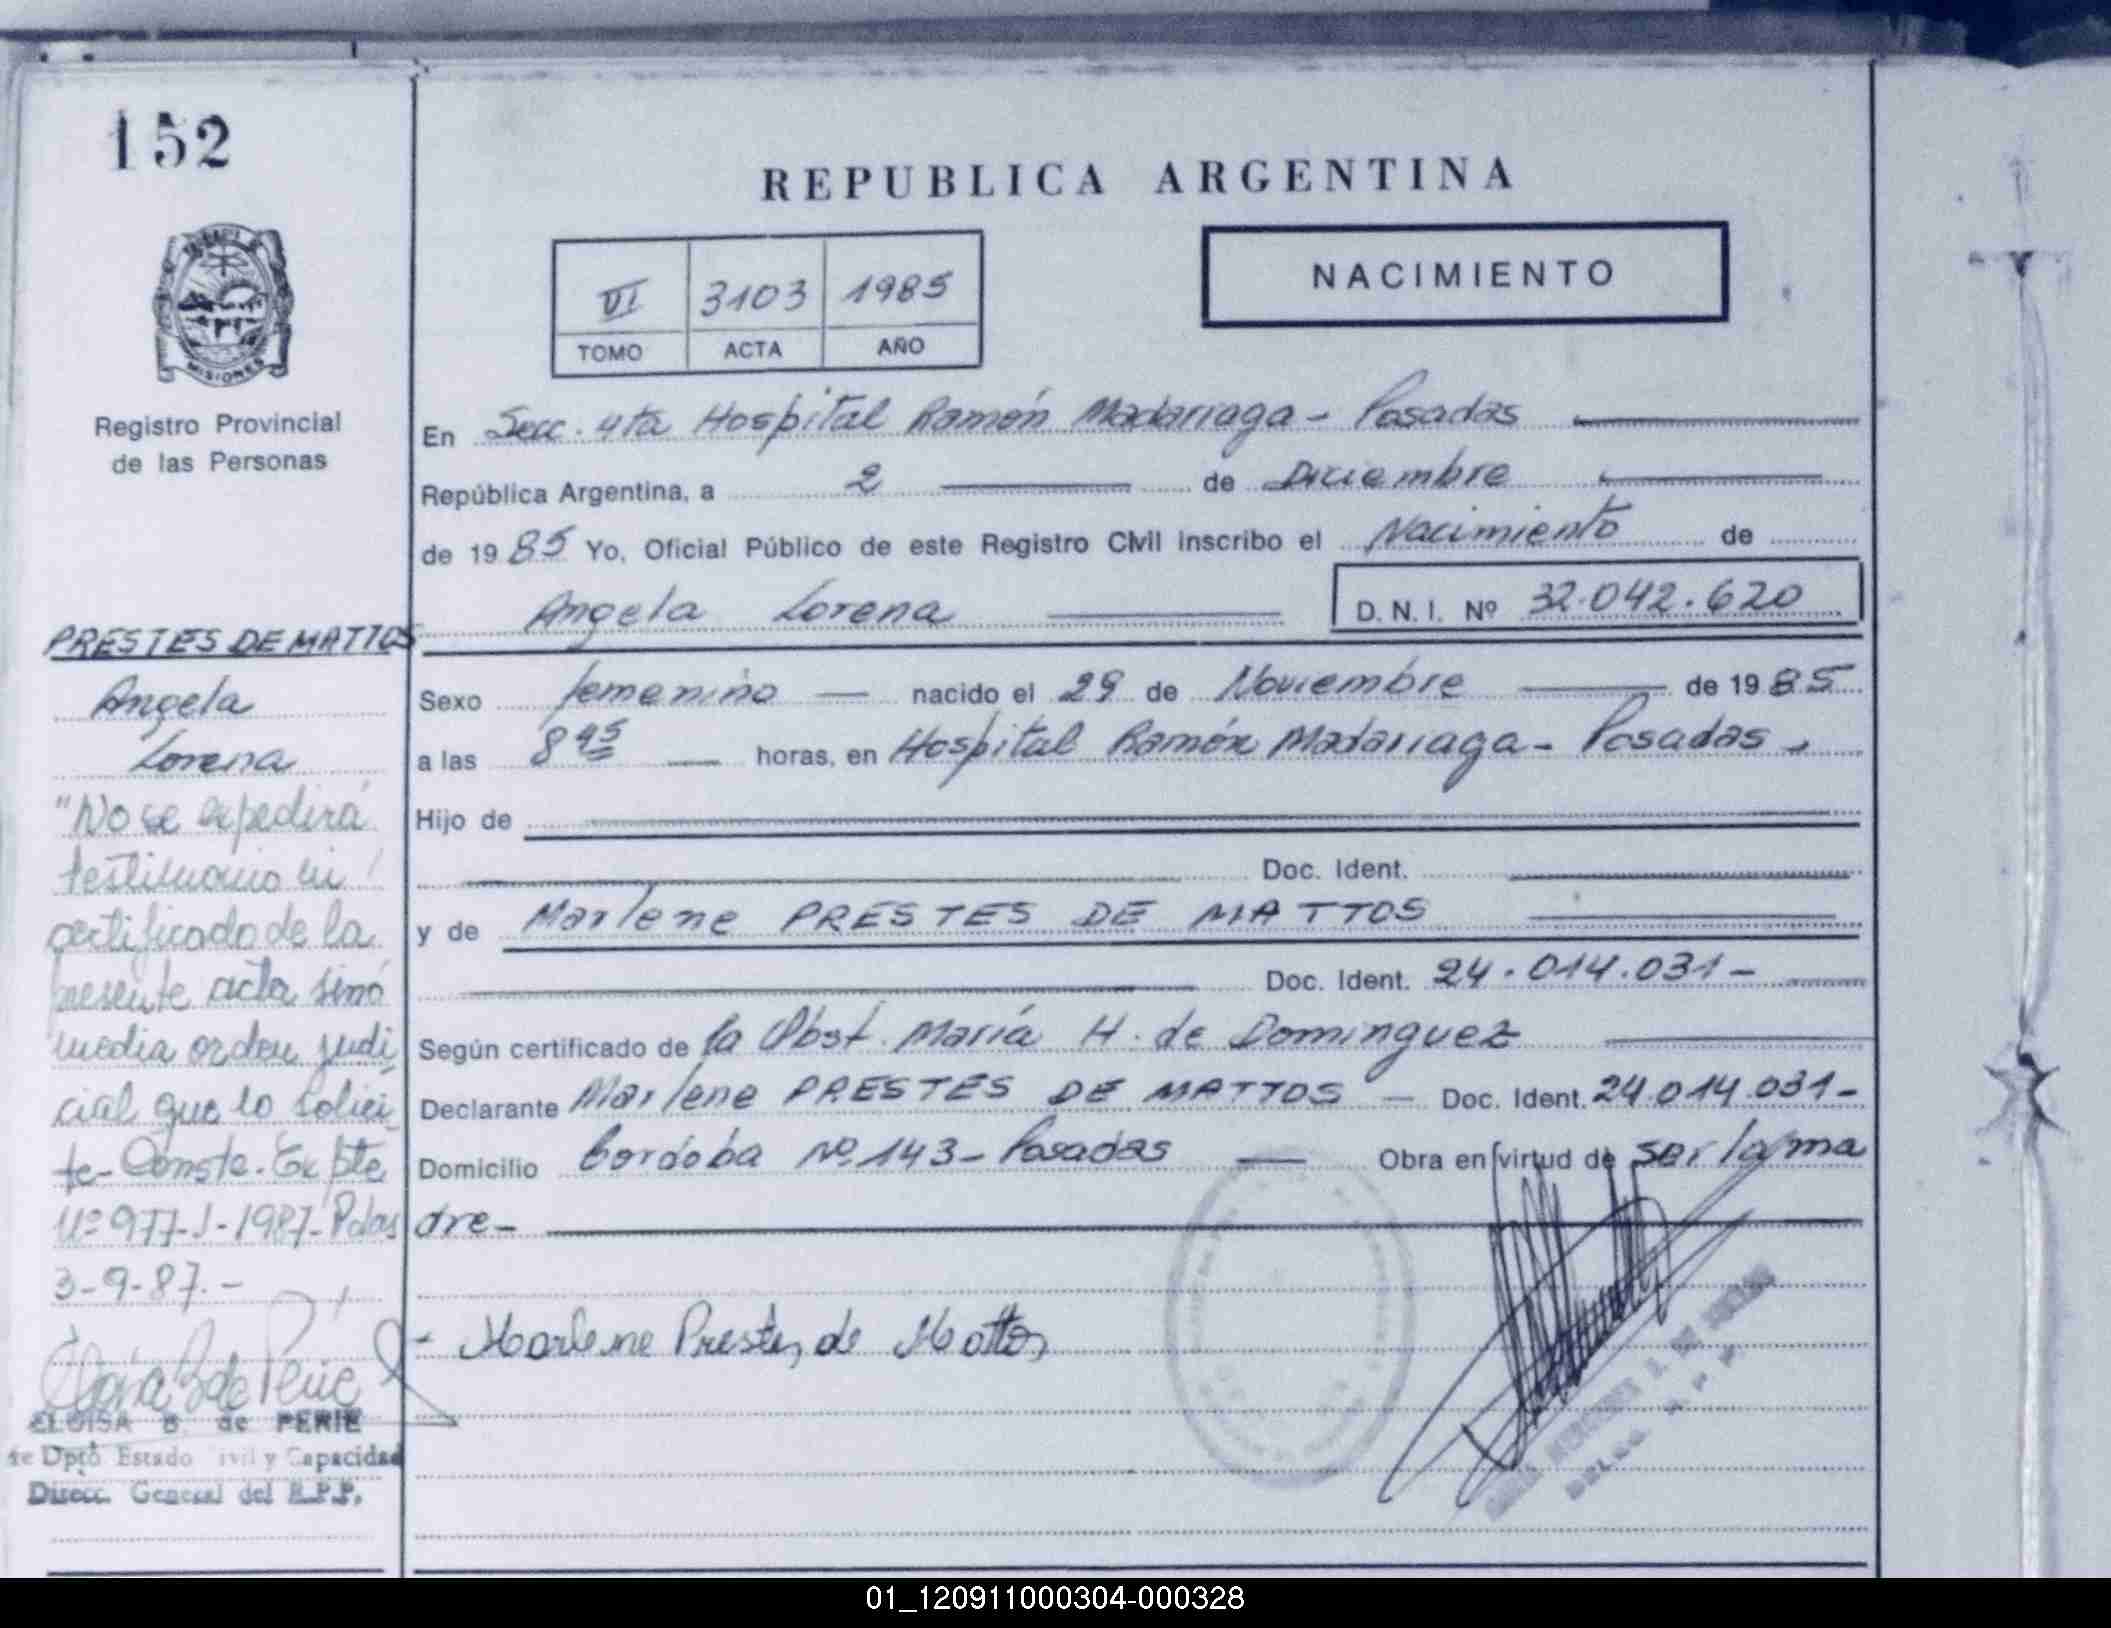 152
MISIONES
Registro Provincial
de las Personas
PRESTES DE MATTOS
Angela
Lorena
"No se expedirá
testimonio ni
certificado de la
presente acta sinó
media orden judi
cial que lo solici
te- Conste. Expte
Nº 977-J-1987- Pdas
3-9-87.-
ELOISA B. de PERIE
Dptô Estado ivil y Capacidad
Direcc. General del R.P.P.
REPUBLICA ARGENTINA
VI 3103 1985
TOMO ACTA AÑO
NACIMIENTO
En Secc. 4ta Hospital Ramón Madariaga - Posadas
República Argentina, a 2 de Diciembre
de 1985 Yo, Oficial Público de este Registro Civil inscribo el Nacimiento de
Angela Lorena D. N. I. Nº 32.042.620
Sexo femenino nacido el 29 de Noviembre de 1985
a las 8 45 horas, en Hospital Ramón Madariaga - Posadas.
Hijo de
Doc. Ident.
y de Marlene PRESTES DE MATTOS
Doc. Ident. 24.014.031-
Según certificado de la Obst. María H. de Dominguez
Declarante Marlene PRESTES DE MATTOS - Doc. Ident. 24.014.031-
Domicilio Cordóba Nº 143- Posadas Obra en virtud de ser la ma
dre-
- Marlene Prestes de Mattos
01_120911000304-000328